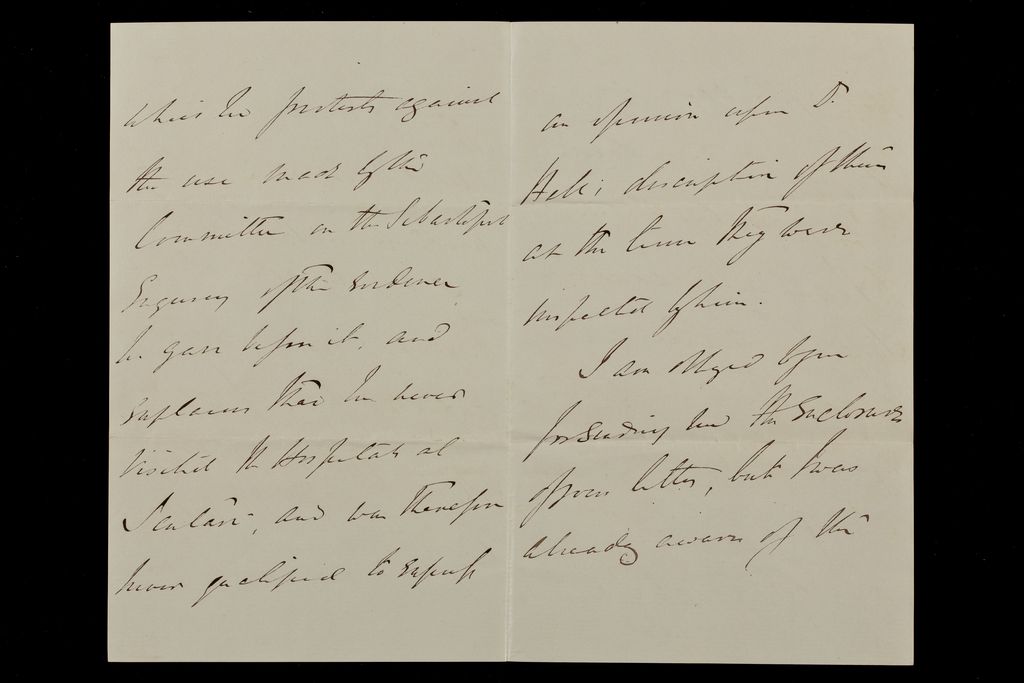 which he protests against
the use made by the
Committee on the Sebastopol
Enquiry of the evidence
he gave before it, and
explains that he never
visited the Hospitals at
Scutari, and was therefore
never qualified to express
an opinion upon Dr.
Hall's description of them
at the time they were
inspected by him.
I am obliged to you
for sending me the enclosures
of your letter, but I was
already aware of the